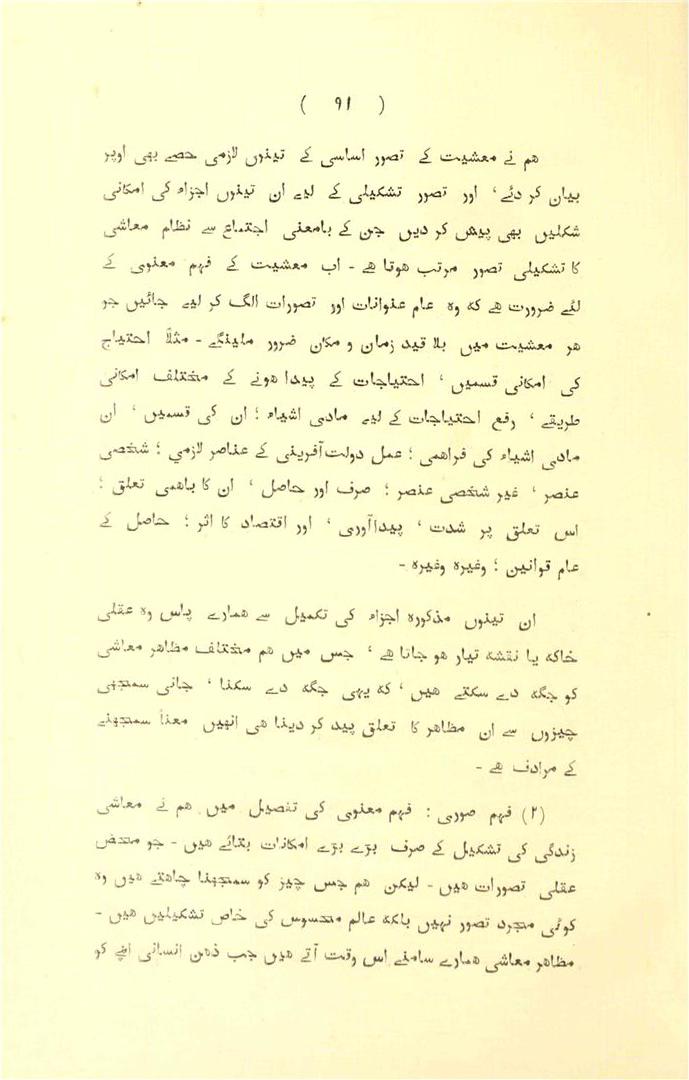 ( ۹۱ )
هم نے معشیت کے تصور اساسی کے تینوں لازمی حصے بھی اوپر
بیان کر دئے، اور تصور تشکیلی کے لیے ان تینوں اجزاء کی امکانی
شکلیں بھی پیش کر دیں جن کے بامعنی اجتماع سے نظام معاشی
کا تشکیلی تصور مرتب ہوتا ہے - اب معشیت کے فہم معنوی کے
لئے ضرورت ہے کہ وہ عام عنوانات اور تصورات الگ کر لیے جائیں جو
ہر معشیت میں بلا قید زمان و مکان ضرور ملینگے - مثلاً احتیاج
کی امکانی قسمیں، احتیاجات کے پیدا ہونے کے مختلف امکانی
طریقے، رفع احتیاجات کے لیے مادی اشیاء؛ ان کی قسمیں، ان
مادی اشیاء کی فراہمی؛ عمل دولت آفرینی کے عناصر لازمی؛ شخصی
عنصر، غیر شخصی عنصر؛ صرف اور حاصل، ان کا باہمی تعلق؛
اس تعلق پر شدت، پیداآوری، اور اقتصاد کا اثر؛ حاصل کے
عام قوانین؛ وغیرہ وغیرہ -
ان تینوں مذکورہ اجزاء کی تکمیل سے ہمارے پاس وہ عقلی
خاکہ یا نقشہ تیار ہو جاتا ہے، جس میں ہم مختلف مظاہر معاشی
کو جگہ دے سکتے ہیں، کہ یہی جگہ دے سکنا، جانی سمجھی
چیزوں سے ان مظاہر کا تعلق پید کر دینا ہی انہیں معناً سمجھنے
کے مرادف ہے -
(۲) فہم صوری: فہم معنوی کی تفصیل میں ہم نے معاشی
زندگی کی تشکیل کے صرف بڑے بڑے امکانات بتائے ہیں - جو محض
عقلی تصورات ہیں - لیکن ہم جس چیز کو سمجھنا چاہتے ہیں وہ
کوئی مجرد تصور نہیں بلکہ عالم محسوس کی خاص تشکیلیں ہیں -
مظاہر معاشی ہمارے سامنے اس وقت آتے ہیں جب ذہن انسانی اپنے کو